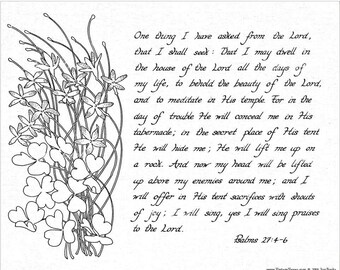 One thing I have asked from the Lord,
that I shall seek: That I may dwell
in the house of the Lord all the days of
my life, to behold the beauty of the Lord,
and to meditate in His temple. For in the
day of trouble He will conceal me in His
tabernacle; in the secret place of His tent
He will hide me; He will lift me up on
a rock. And now my head will be lifted
up above my enemies around me; and I
will offer in His tent sacrifices with shouts
of joy; I will sing, yes I will sing praises
to the Lord.
Psalms 27:4-6